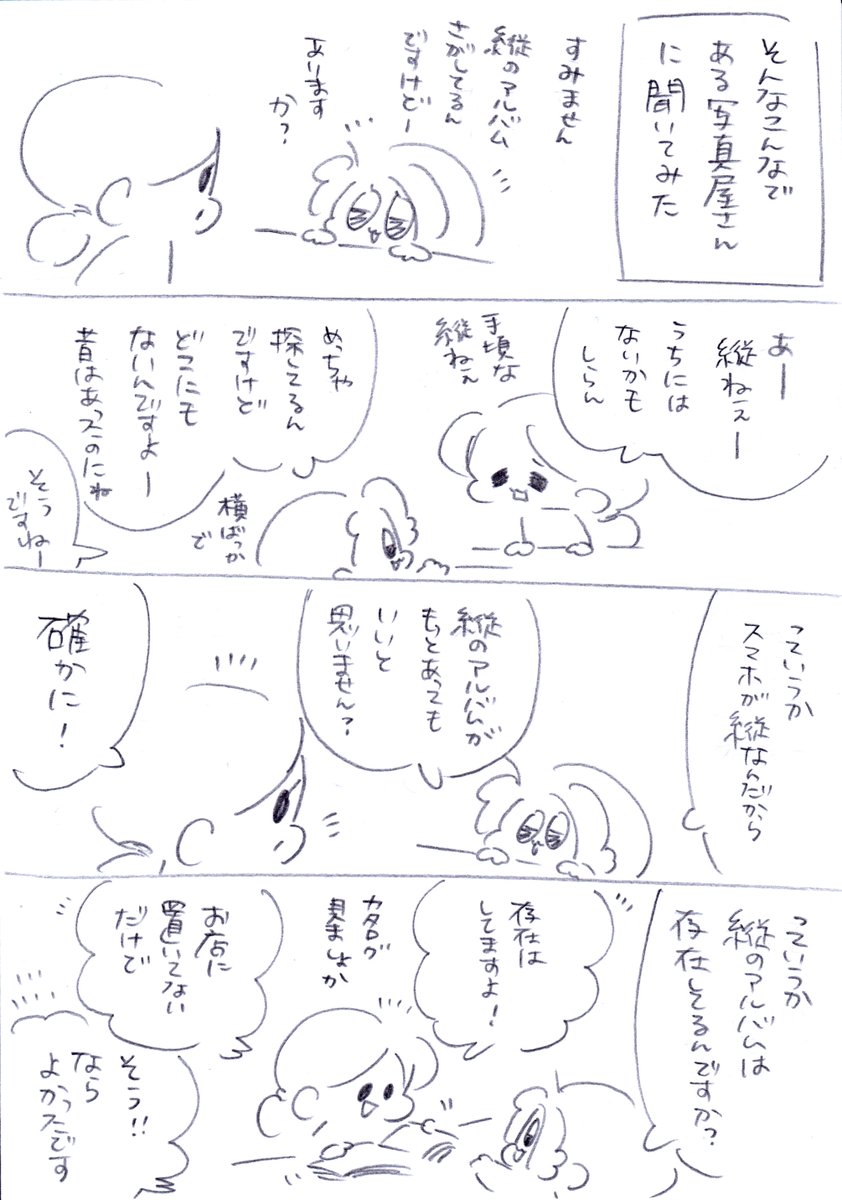 そんなこんなで
ある写真屋さん
に聞いてみた
すみません
縦のアルバム
さがしてるん
ですけどー
あります
か?
あー
縦ねぇー
うちには
ないかも
しらん
手頃な
縦ねぇ
めっちゃ
探してるん
ですけど
どこにも
ないんですよー
昔はあったのにね
横ばっか
で
そうねー
ですねー
っていうか
スマホが縦なんだから
縦のアルバムが
もっとあっても
いいと
思いません?
確かに!
っていうか
縦のアルバムは
存在してるんですか?
存在は
してますよ!
カタログ
見ましょか
お店に
置いてない
だけで
そう!!
なら
よかったです